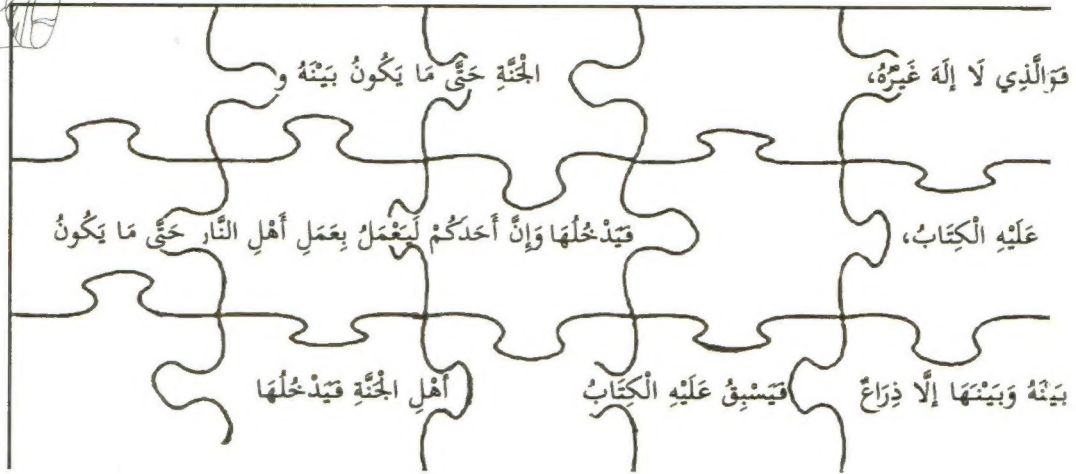 فَوَالَّذِي لَا إِلَهَ غَيْرُهُ، الْجَنَّةِ حَتَّى مَا يَكُونُ بَيْنَهُ و
عَلَيْهِ الْكِتَابُ، فَيَدْخُلُهَا وَإِنَّ أَحَدَكُمْ لَيَعْمَلُ بِعَمَلِ أَهْلِ النَّارِ حَتَّى مَا يَكُونُ
بَيْنَهُ وَبَيْنَهَا إِلَّا ذِرَاعٌ فَيَسْبِقُ عَلَيْهِ الْكِتَابُ أَهْلِ الْجَنَّةِ فَيَدْخُلُهَا